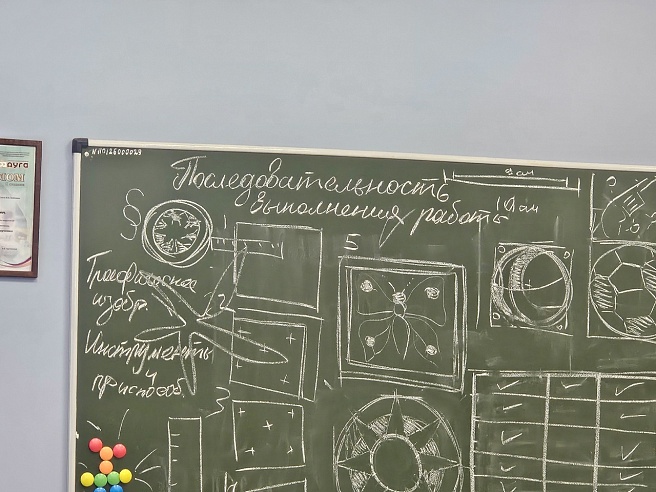 Последовательность
выполнения работы
§
1
2
3
5
Графическое
изобр.
Инструменты
и
приспособ.